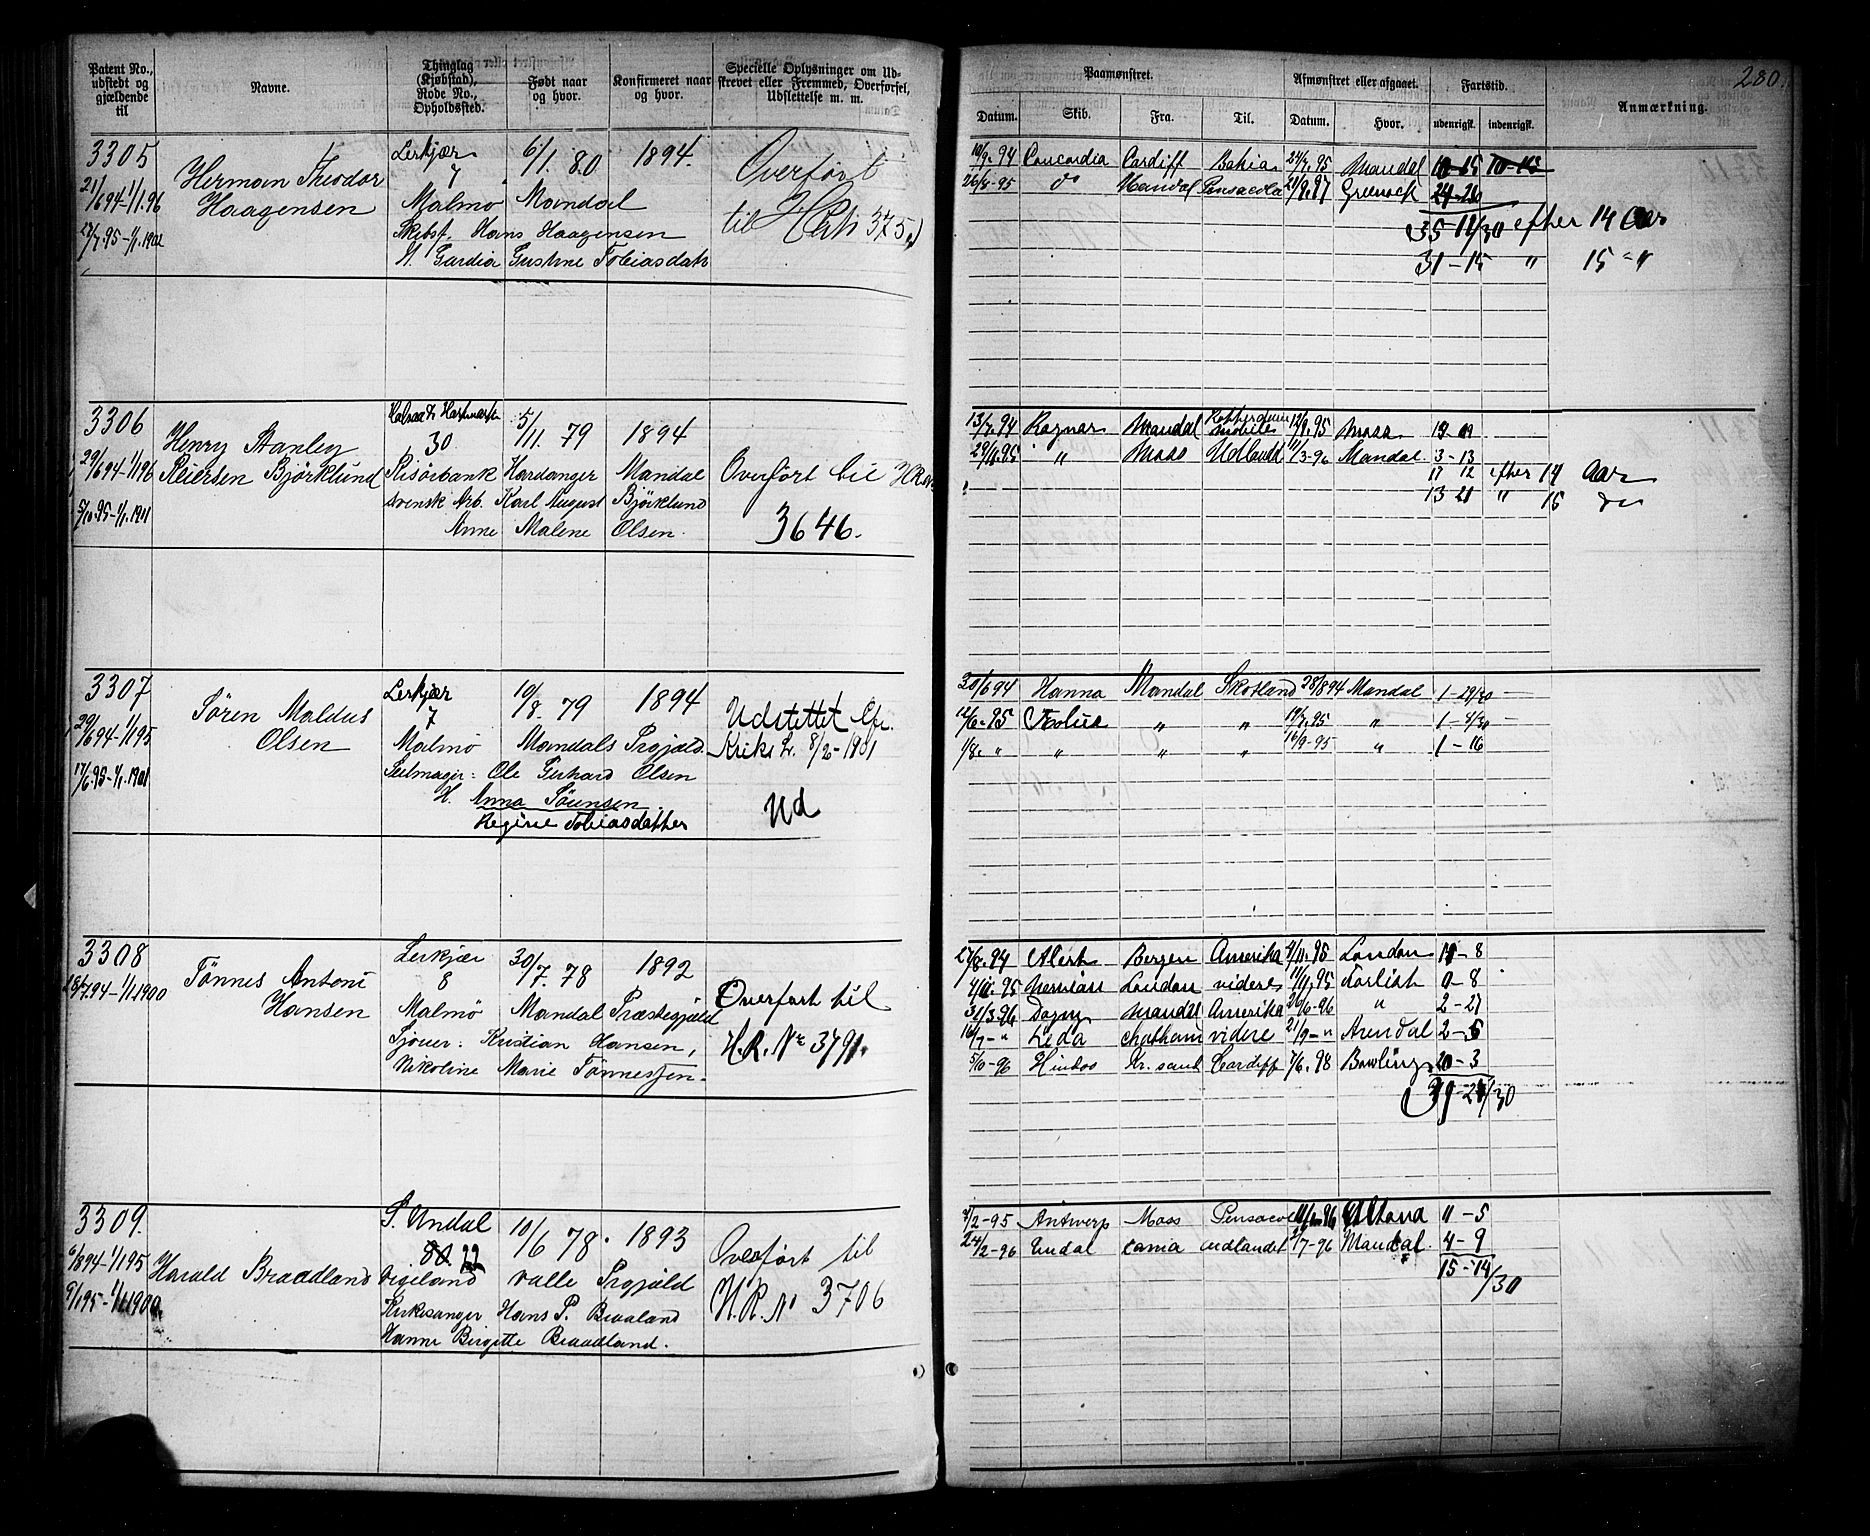 280.
Patent No., udstedt og gjældende til
Navne.
Thinglag (Kjøbstad), Rode No., Opholdssted.
Født naar og hvor.
Konfirmeret naar og hvor.
Specielle Oplysninger om Udskrevet eller Fremmed, Overførsel, Udslettelse m. m.
Paamønstret.
Afmønstret eller afgaaet.
Fartstid.
Anmærkning.
Datum. Skib. Fra. Til. Datum. Hvor. udenrigsk. indenrigsk.
3305
21/6 94-1/1.96
27/7.95-1/1.1901
Herman Theodor
Haagensen
Lerkjær
7
6/1. 80
1894.
Malmø Mandal
Skibst. Hans Haagensen
H. Gardia Gustine Tobiasdatt
Overført
til 375
10/9.94 Concordia Cardiff Bahia 24/7.95 Mandal
26/8-95 do Mandal Pensacola 21/8.97 Greenock 24-26
35-11/30 efter 14 Aar
31-15 " 15 "
3306
29/6 94-1/1 96
5/10.95-1/1.1901
Henry Stanley
Reiersen Bjørklund
Halsaa & Hartmark
30
5/11 79
1894
Risørbank Hardanger Mandal
svensk Arb. Karl August Bjørklund
Anne Malene Olsen.
Overført til
3646.
13/7.94 Ragnar Mandal mobile 12/9.95 Moss
29/10.95 " Moss Udlandet 11/3-96 Mandal. 3-13
17 12 efter 14 Aar
13 21 " 15 do
3307
29/6 94-1/1 95
17/6.95-1/1.1901
Søren Maldus
Olsen
Lerkjær
7
19/8. 79
1894
Malmø Mandals Prgjæld.
Seilmager: Ole Gerhard Olsen
H. Anna Sørensen.
Regine Tobiasdatter
Udslettet
8/2-1901
Ud
30/6 94 Hanna Mandal Skotland 28/8 94 Mandal 1-29/30
12/6.95 " " 19/7.95 " 1-8/30
1/8. " " " " 16/9-95 " 1-16
3308
28/7.94-1/1.1900
Tønnes Antoni
Hansen
Lerkjær
8
30/7. 78
1892
Malmø Mandal Præstegjæld
Sjømer: Kristian Hansen,
Nikoline Marie Tønnessen.
Overført til
H.R. Nr 3791.
27/8.94 Alert Bergen Amerika 4/11.95 London 14-8
London videre 11/11.95 0-8
31/3.96 Dagny Mandal Amerika 26/6-96 " 2-27
16/7-" Leda Chatham videre 21/9-" Arendal 2-5
5/10-96 Hindoo Kr.sand Cardiff 7/6.98 Bowling 20-3
39-21/30
3309.
6/8 94-1/1 95
9/1 95-1/1 1900
Harald Braadland
S. Undal
22
10/6 78.
1893
Vigeland Valle Prgjæld
Kirkesanger Hans P. Braaland
Hanne Birgitte Braadland.
Overført til
H.R. No 3706
4/2-95 Antwerp Moss Pensacola Altona 11-5
24/2-96 Undal udlandet 2/7-96 Mandal. 4-9
15-14/30